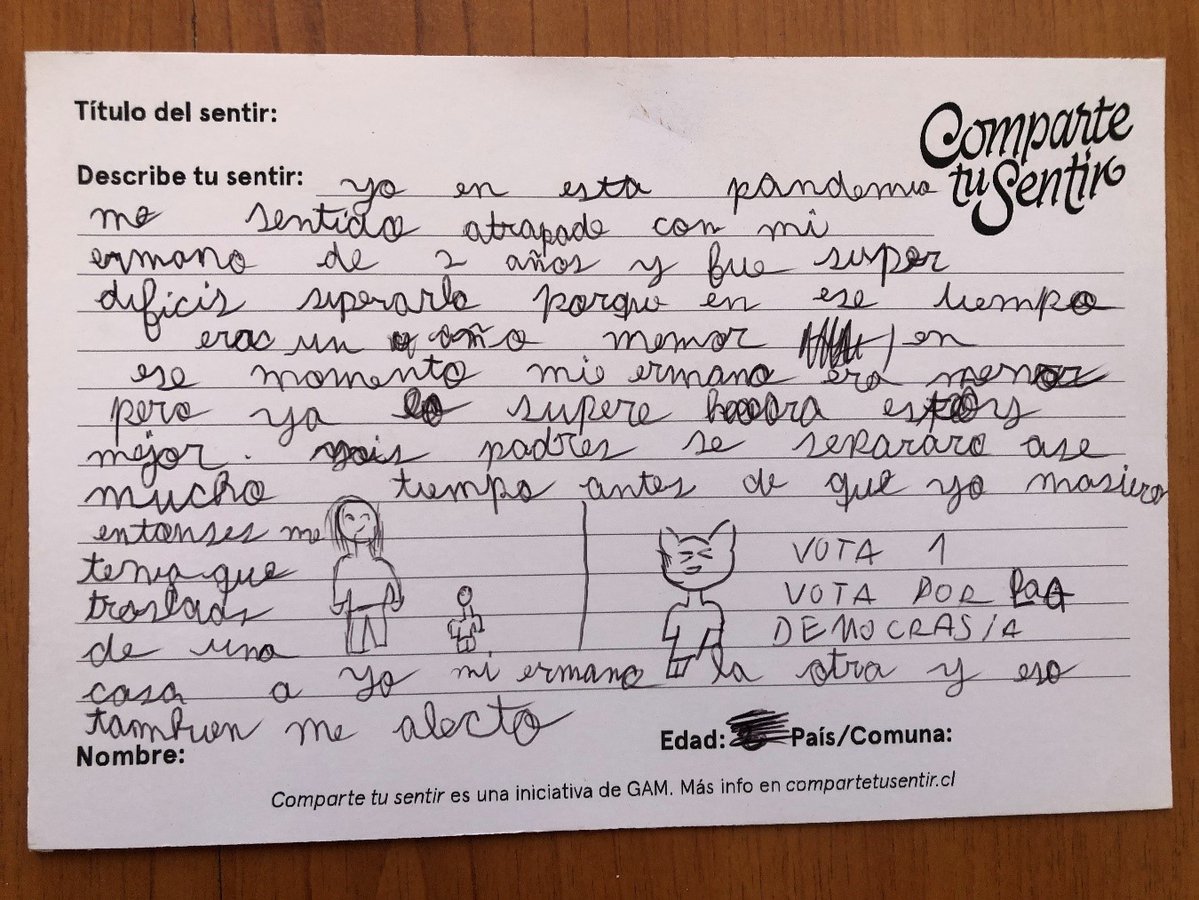 Título del sentir:
Comparte
tu Sentir
Describe tu sentir: yo en esta pandemia
me sentido atrapado con mi
ermano de 2 años y fue super
dificis superarlo porque en ese tiempo
era un año menor en
ese momento mi ermano era menor
pero ya lo supere haora estoy
mejor. mis padres se separaro ase
mucho tiempo antes de que yo masiera
entonses me
tenia que
traslads
de una
casa a la otra y eso
tambien me afecto
yo mi ermano
VOTA 1
VOTA POR LA
DEMOCRASIA
Nombre:
Edad: País/Comuna:
Comparte tu sentir es una iniciativa de GAM. Más info en compartetusentir.cl